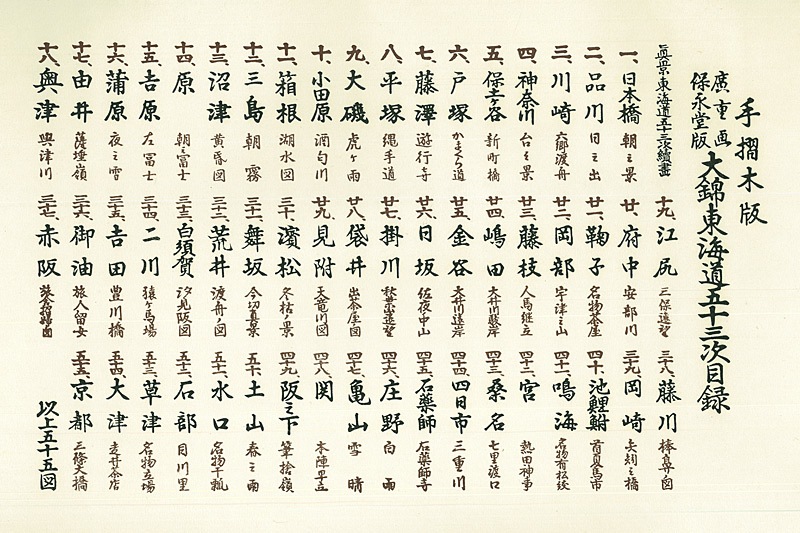 手摺木版
廣重画
保永堂版
大錦東海道五十三次目録
真景東海道五十三次續畫
一、日本橋 朝之景
二、品川 日之出
三、川崎 六郷渡舟
四、神奈川 台之景
五、保土ヶ谷 新町橋
六、戸塚 かまくら道
七、藤澤 遊行寺
八、平塚 縄手道
九、大磯 虎ヶ雨
十、小田原 酒匂川
十一、箱根 湖水図
十二、三島 朝霧
十三、沼津 黄昏図
十四、原 朝之富士
十五、吉原 左富士
十六、蒲原 夜之雪
十七、由井 薩埵嶺
十八、興津 興津川
十九、江尻 三保遠望
廿、府中 安部川
廿一、鞠子 名物茶屋
廿二、岡部 宇津之山
廿三、藤枝 人馬継立
廿四、嶋田 大井川駿岸
廿五、金谷 大井川遠岸
廿六、日坂 佐夜中山
廿七、掛川 秋葉山遠望
廿八、袋井 出茶屋図
廿九、見附 天竜川図
三十、濱松 冬枯ノ景
三十一、舞坂 今切真景
三十二、荒井 渡舟ノ図
三十三、白須賀 汐見阪図
三十四、二川 猿ヶ馬場
三十五、吉田 豊川橋
三十六、御油 旅人留女
三十七、赤阪
三十八、藤川 棒鼻ノ図
三十九、岡崎 矢矧之橋
四十、池鯉鮒 首夏馬市
四十一、鳴海 名物有松絞
四十二、宮 熱田神事
四十三、桑名 七里渡口
四十四、四日市 三重川
四十五、石薬師 石薬師寺
四十六、庄野 白雨
四十七、亀山 雪晴
四十八、関 本陣早立
四十九、阪之下 筆捨嶺
五十、土山 春之雨
五十一、水口 名物干瓢
五十二、石部 目川里
五十三、草津 名物立場
五十四、大津 走井茶店
五十五、京都 三條大橋
以上五十五図